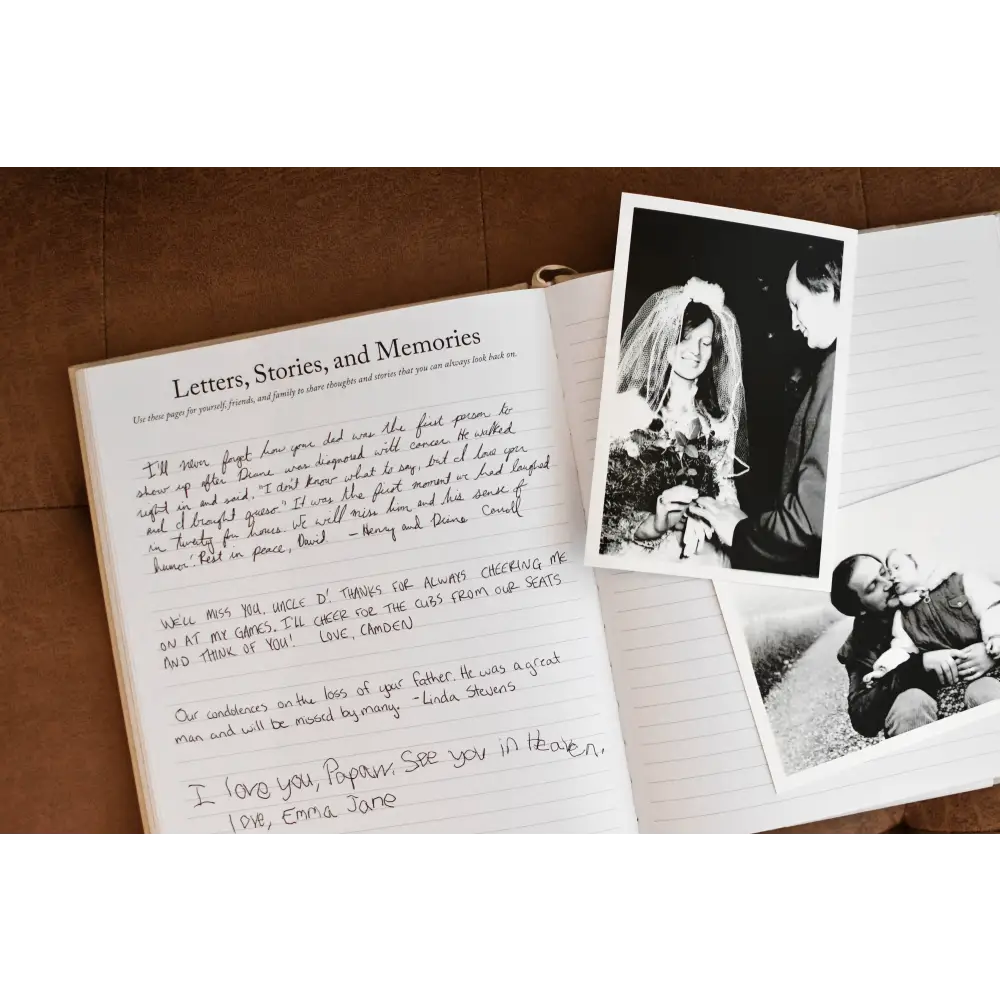 Letters, Stories, and Memories
Use these pages for yourself, friends, and family to share thoughts and stories that you can always look back on.
I'll never forget how your dad was the first person to
show up after Diane was diagnosed with cancer. He walked
right in and said, "I don't know what to say, but I love you
and I brought queso." It was the first moment we had laughed
in twenty four hours. We will miss him and his sense of
humor. Rest in peace, David. – Henry and Diane Carroll
WE'LL MISS YOU, UNCLE D! THANKS FOR ALWAYS CHEERING ME
ON AT MY GAMES. I'LL CHEER FOR THE CUBS FROM OUR SEATS
AND THINK OF YOU! LOVE, CAMDEN
Our condolences on the loss of your father. He was a great
man and will be missed by many. -Linda Stevens
I love you, Papaw. See you in Heaven.
love, Emma Jane